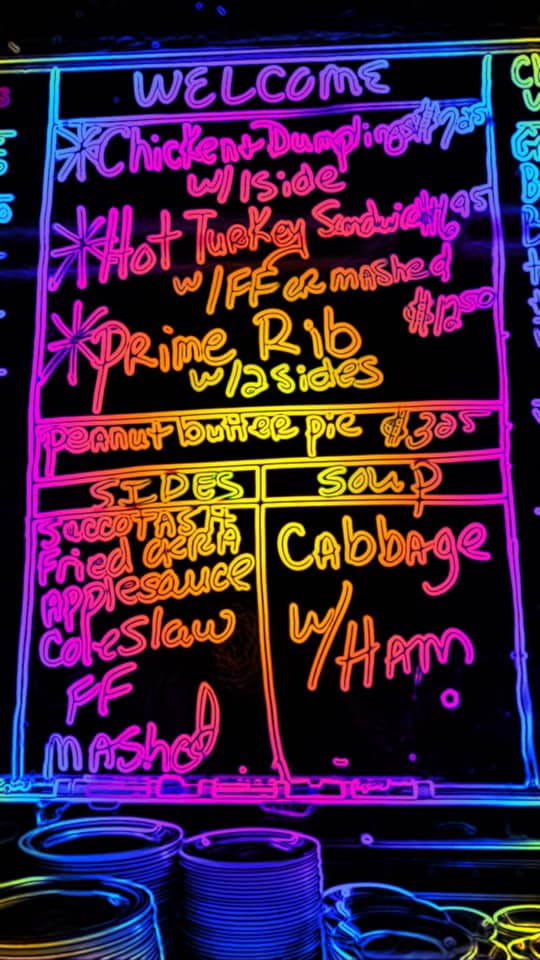 WELCOME
*Chicken + Dumplings $7.25
w/1side
*Hot Turkey Sandwich $6.95
w/FF or mashed
$12.50
*Prime Rib
w/2sides
peanut butter pie $3.25
SIDES
SOUP
Succotash
Fried okra
Applesauce
Coleslaw
FF
mashed
Cabbage
w/HAM